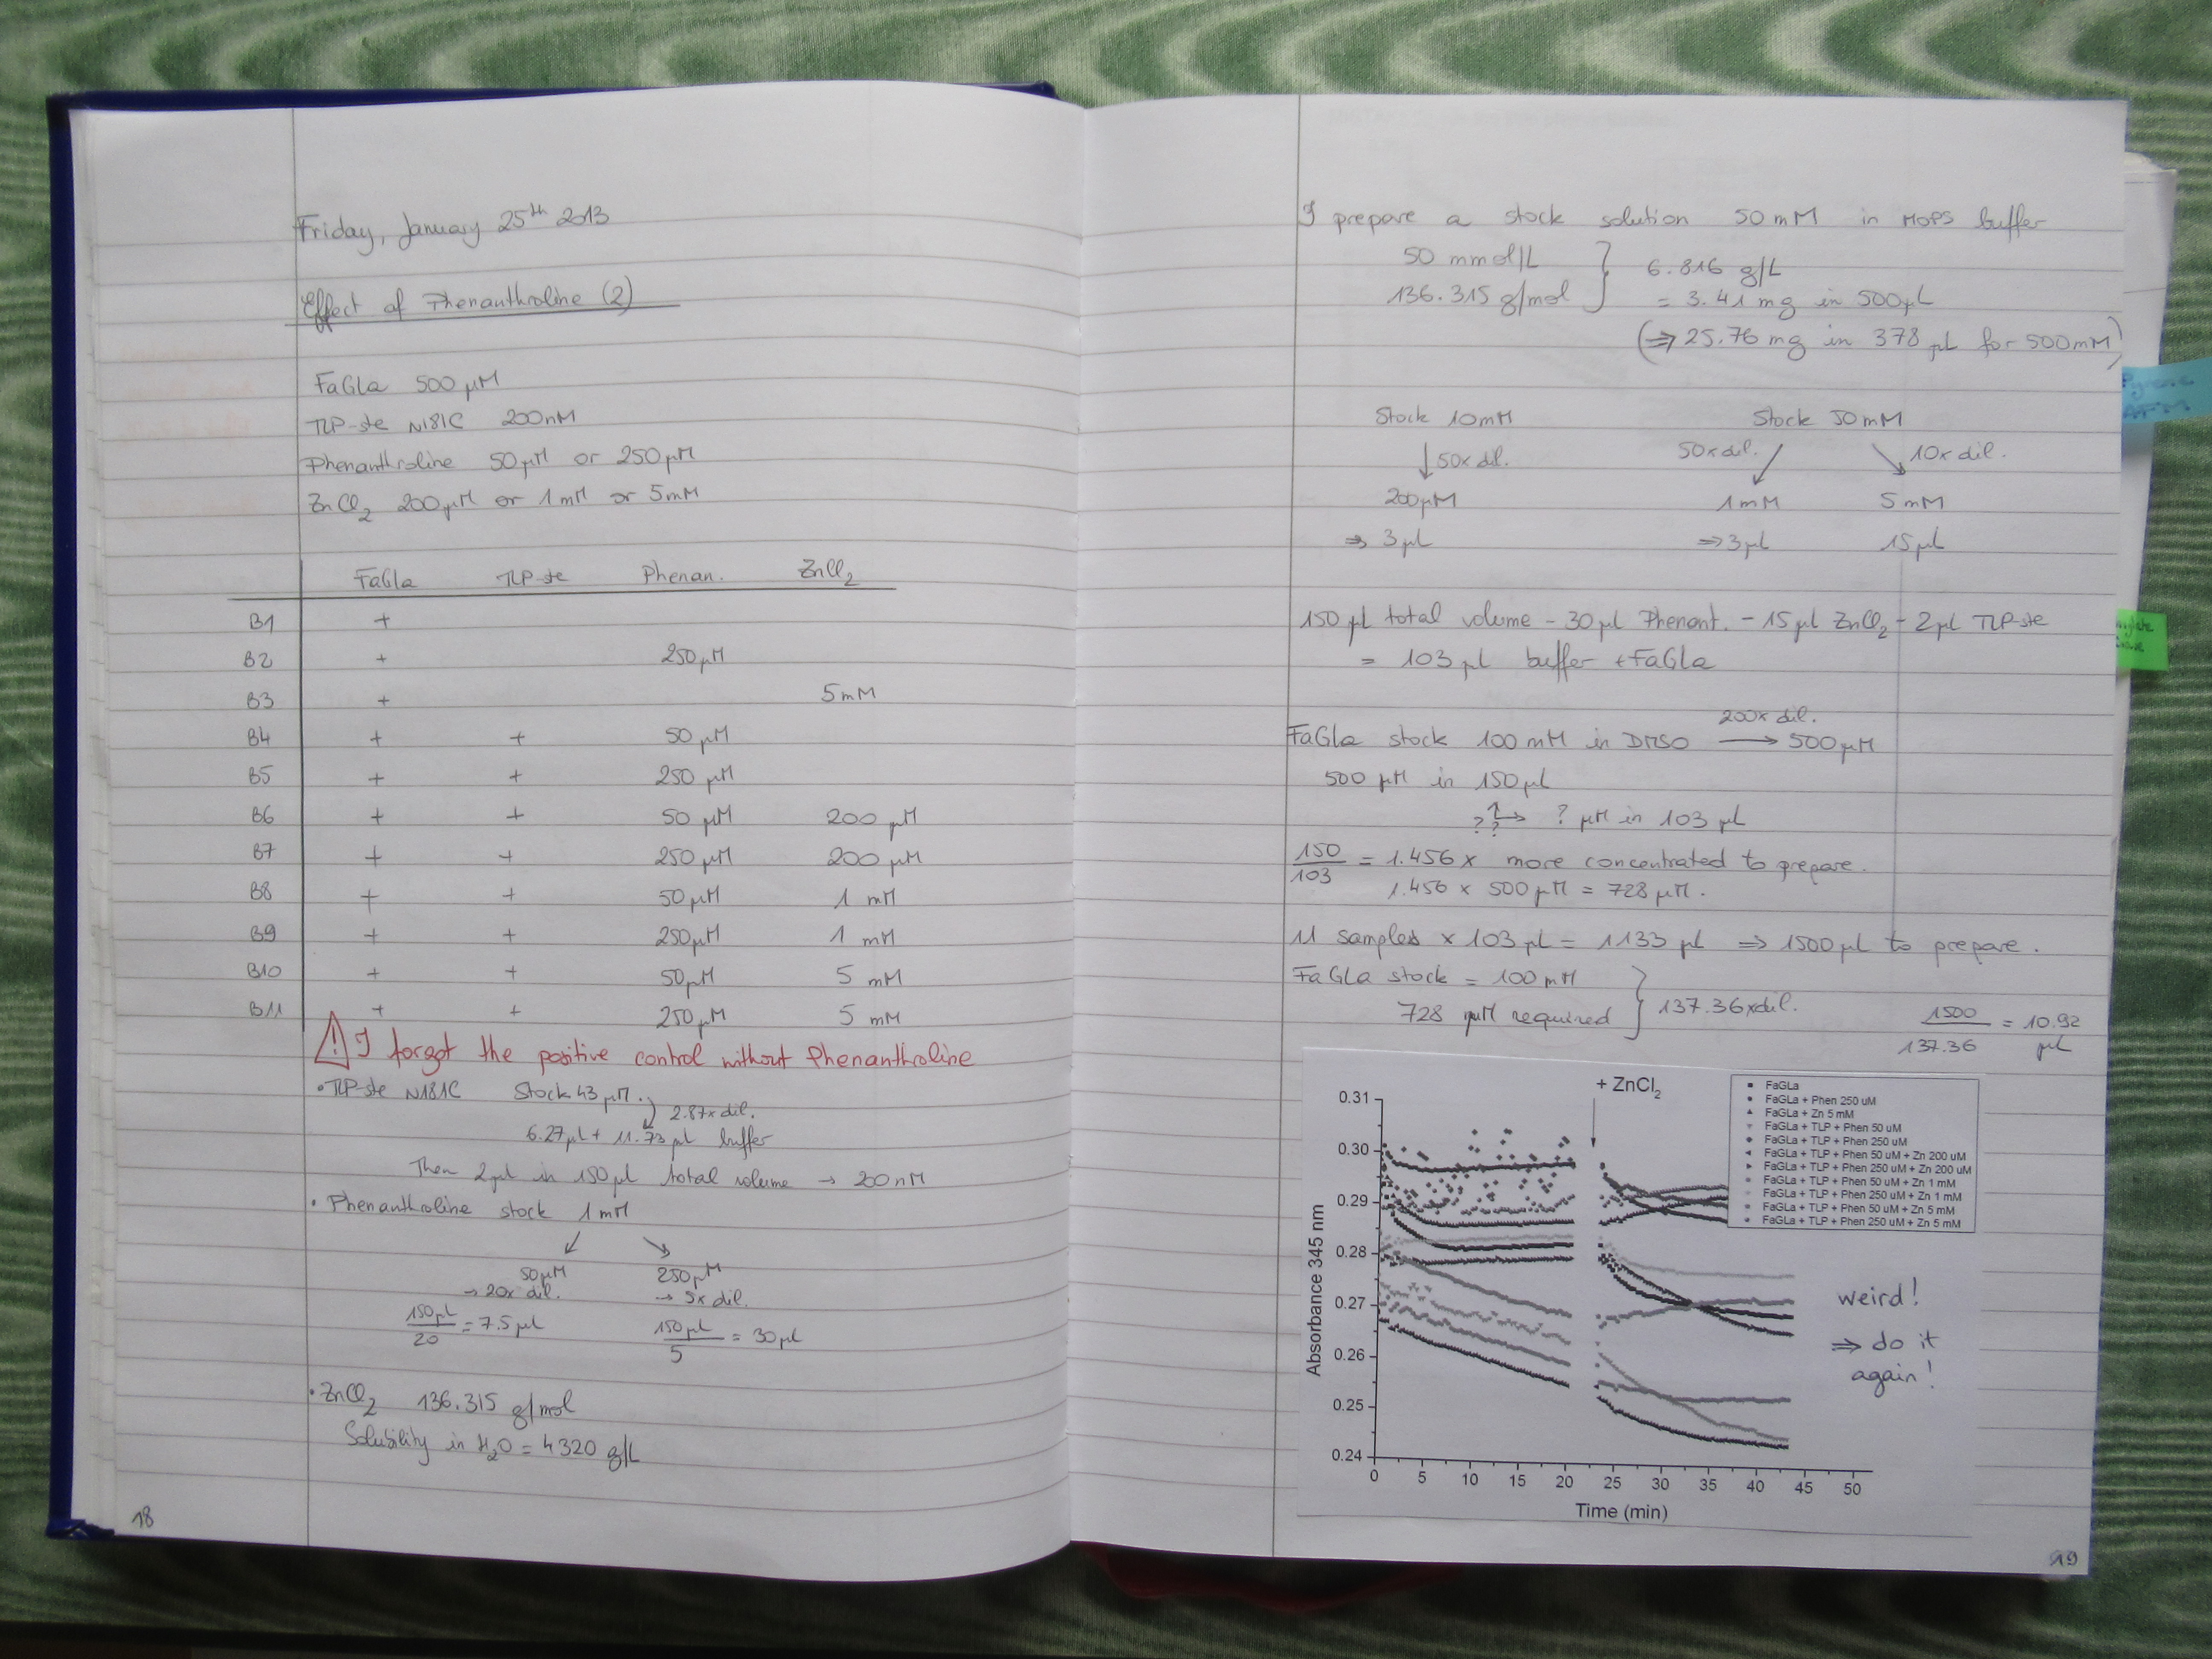 Friday, January 25th 2013
Effect of Phenanthroline (2)
FaGla 500 µM
TLP-ste N181C 200nM
Phenanthroline 50µM or 250µM
ZnCl2 200µM or 1mM or 5mM
FaGla TLP-ste Phenan. ZnCl2
B1 +
B2 + 250µM
B3 + 5mM
B4 + + 50 µM
B5 + + 250 µM
B6 + + 50 µM 200 µM
B7 + + 250µM 200 µM
B8 + + 50µM 1 mM
B9 + + 250µM 1 mM
B10 + + 50µM 5 mM
B11 + + 250µM 5 mM
! I forgot the positive control without Phenanthroline
• TLP-ste N181C Stock 43 µM.
2.87x dil.
6.27µL + 11.73µL buffer
Then 2µL in 150µL total volume → 200nM
• Phenanthroline stock 1mM
50µM 250µM
→ 20x dil. → 5x dil.
150µL/20 = 7.5µL 150µL/5 = 30µL
• ZnCl2 136.315 g/mol
Solubility in H2O = 4320 g/L
18
I prepare a stock solution 50mM in MOPS buffer
50 mmol/L } 6.816 g/L
136.315 g/mol = 3.41 mg in 500µL
(⇒ 25.76 mg in 378 µL for 500mM)
Stock 10mM Stock 50mM
↓ 50x dil. 50x dil. 10x dil.
200µM 1mM 5mM
⇒ 3µL ⇒ 3µL 15µL
150 µL total volume - 30µL Phenant. - 15µL ZnCl2 - 2µL TLP-ste
= 103 µL buffer + FaGla
200x dil.
FaGla stock 100mM in DMSO → 500µM
500 µM in 150µL
? ? → ? µM in 103 µL
150/103 = 1.456 x more concentrated to prepare.
1.456 x 500µM = 728 µM.
11 samples x 103µL = 1133 µL ⇒ 1500µL to prepare.
FaGla stock = 100mM
728 µM required } 137.36x dil.
1500/137.36 = 10.92 µL
+ ZnCl2
FaGLa
FaGLa + Phen 250 uM
FaGLa + Zn 5 mM
FaGLa + TLP + Phen 50 uM
FaGLa + TLP + Phen 250 uM
FaGLa + TLP + Phen 50 uM + Zn 200 uM
FaGLa + TLP + Phen 250 uM + Zn 200 uM
FaGLa + TLP + Phen 50 uM + Zn 1 mM
FaGLa + TLP + Phen 250 uM + Zn 1 mM
FaGLa + TLP + Phen 50 uM + Zn 5 mM
FaGLa + TLP + Phen 250 uM + Zn 5 mM
0.31
0.30
0.29
0.28
0.27
0.26
0.25
0.24
Absorbance 345 nm
0 5 10 15 20 25 30 35 40 45 50
Time (min)
weird!
⇒ do it
again!
19